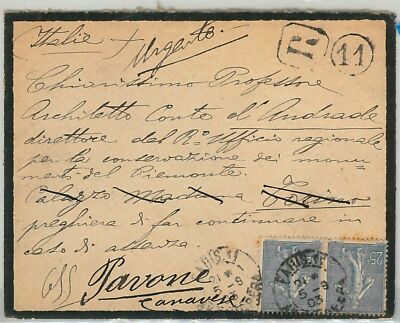 Italie + Urgente
R 11
Chiarissimo Professore
Architetto Conte d'Andrade
direttore del R.º Ufficio regionale
per la conservazione dei monu
menti del Piemonte
Palazzo Madama Torino
preghiera di far continuare in
caso di assenza
Pavone
Canavese
25
PARIS